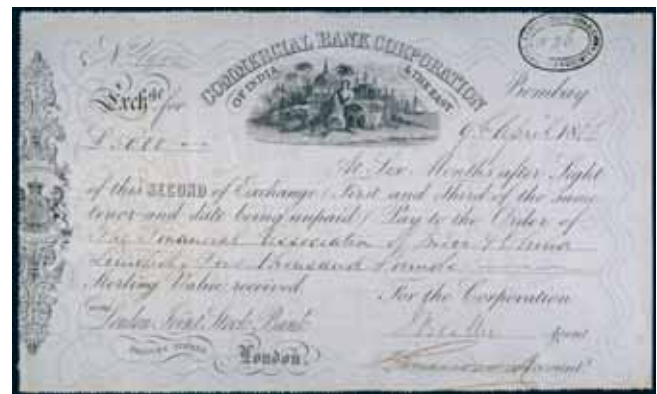 COMMERCIAL BANK CORPORATION
OF INDIA & THE EAST.
Exchge for
Bombay
£5000
9th April 18
At Six Months after Sight
of this SECOND of Exchange (First and Third of the same
tenor and date being unpaid) Pay to the Order of
The Financial Association of India & China
Limited, Five Thousand Pounds
Sterling Value received.
For the Corporation
London Joint Stock Bank
Agent
London
Accountt